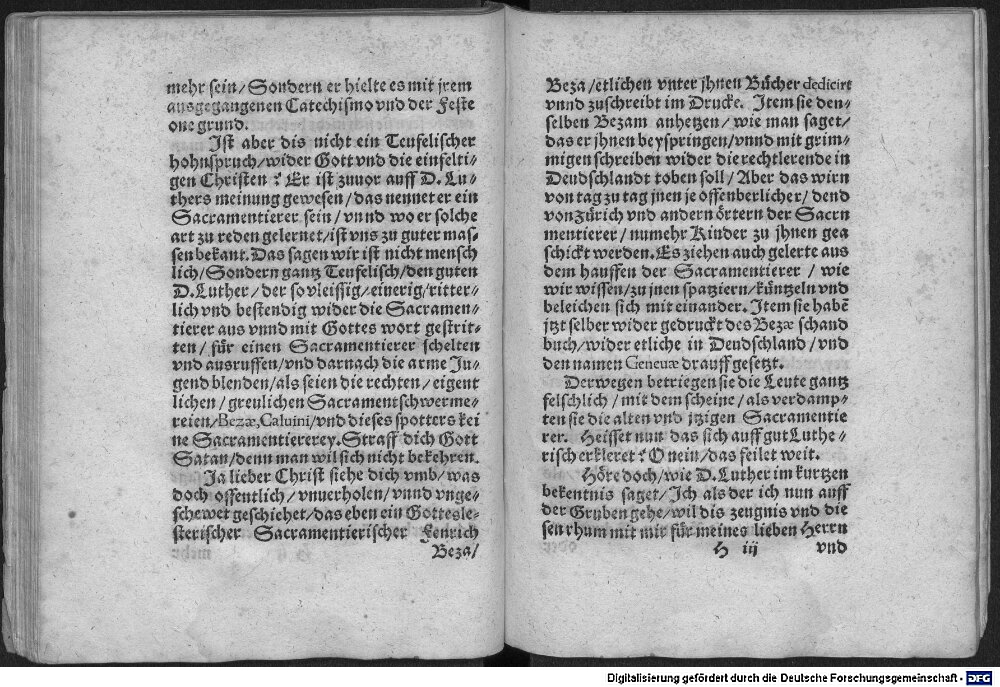 mehr sein/ Sondern er hielte es mit jrem
ausgegangenen Catechismo vnd der Feste
one grund.
Ist aber dis nicht ein Teufelischer
hohnspruch/ wider Gott vnd die einfelti-
gen Christen? Er ist zuuor auff D. Lu-
thers meinung gewesen/ das nennet er ein
Sacramentierer sein/ vnnd wo er solche
art zu reden gelernet/ ist vns zu guter mas-
sen bekant. Das sagen wir ist nicht mensch
lich/ Sondern gantz Teufelisch/ den guten
D. Luther/ der so vleissig/ einerig/ ritter-
lich vnd bestendig wider die Sacramen-
tierer aus vnnd mit Gottes wort gestrit-
ten/ für einen Sacramentierer schelten
vnd ausruffen/ vnd darnach die arme Ju-
gend blenden/ als seien die rechten/ eigent
lichen/ greulichen Sacramentschwerme-
reien/ Bezæ, Caluini/ vnd dieses spotters kei
ne Sacramentiererey. Straff dich Gott
Satan/ denn man wil sich nicht bekehren.
Ja lieber Christ siehe dich vmb/ was
doch offentlich/ vnuerholen/ vnnd vnge-
schewet geschiehet/ das eben ein Gottesle-
sterischer Sacramentierischer Fenrich
Beza/
Beza/ etlichen vnter jhnen Bücher dedicirt
vnnd zuschreibt im Drucke. Item sie den-
selben Bezam anhetzen/ wie man saget/
das er jhnen beyspringen/ vnnd mit grim-
migen schreiben wider die rechtlerende in
Deudschlandt toben soll/ Aber das wirn
von tag zu tag jnen je offenberlicher/ dend
von Zürich vnd andern örtern der Sacrn
mentierer/ numehr Kinder zu jhnen gea
schickt werden. Es ziehen auch gelerte aus
dem hauffen der Sacramentierer/ wie
wir wissen/ zu jnen spatziern/ küntzeln vnd
beleichen sich mit einander. Item sie habē
jtzt selber wider gedruckt des Bezæ schand
buch/ wider etliche in Deudschland/ vnd
den namen Geneuæ drauff gesetzt.
Derwegen betriegen sie die Leute gantz
felschlich/ mit dem scheine/ als verdamp-
ten sie die alten vnd jtzigen Sacramentie
rer. Heisset nun das sich auff gut Luthe-
risch erkleret? O nein/ das feilet weit.
Höre doch/ wie D. Luther im kurtzen
bekentnis saget/ Ich als der ich nun auff
der Gruben gehe/ wil dis zeugnis vnd die
sen rhum mit mir für meines lieben Herrn
H iij vnd
Digitalisierung gefördert durch die Deutsche Forschungsgemeinschaft - DFG